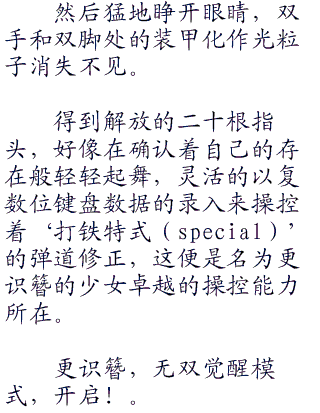 然后猛地睁开眼睛，双
手和双脚处的装甲化作光粒
子消失不见。
得到解放的二十根指
头，好像在确认着自己的存
在般轻轻起舞，灵活的以复
数位键盘数据的录入来操控
着‘打铁特式（special）’
的弹道修正，这便是名为更
识簪的少女卓越的操控能力
所在。
更识簪，无双觉醒模
式，开启！。